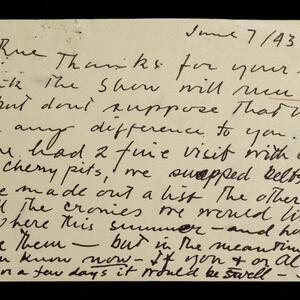 June 7/43
Rue Thanks for your
the Show will run
but dont suppose that
any difference to you.
had a fine visit with
cherry pits, we swapped
made out a list the other
the cronies we would li
here this summer — and ho
them — but in the meantim
know now — If you + or Al
or a few days it would be swell —